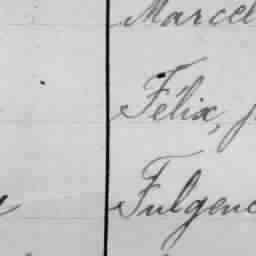 Marcel
Félix,
Fulgenc